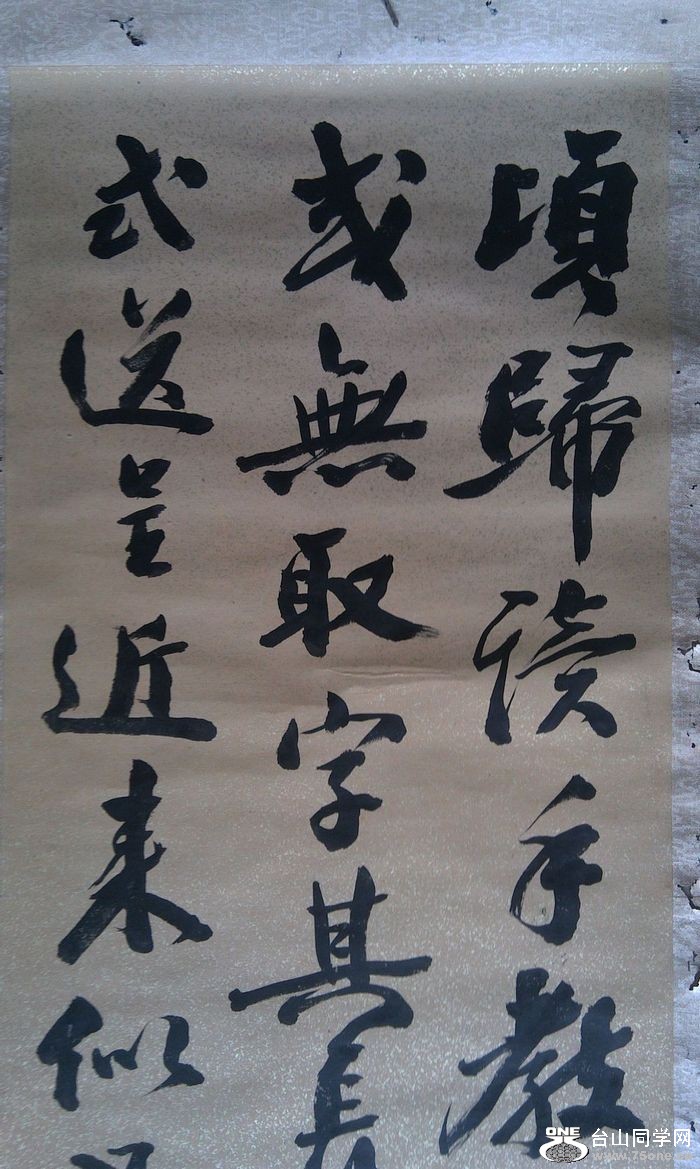 頃歸读手教
或無取字其長
式送呈近来似
ONE
台山同学网
www.75one.com